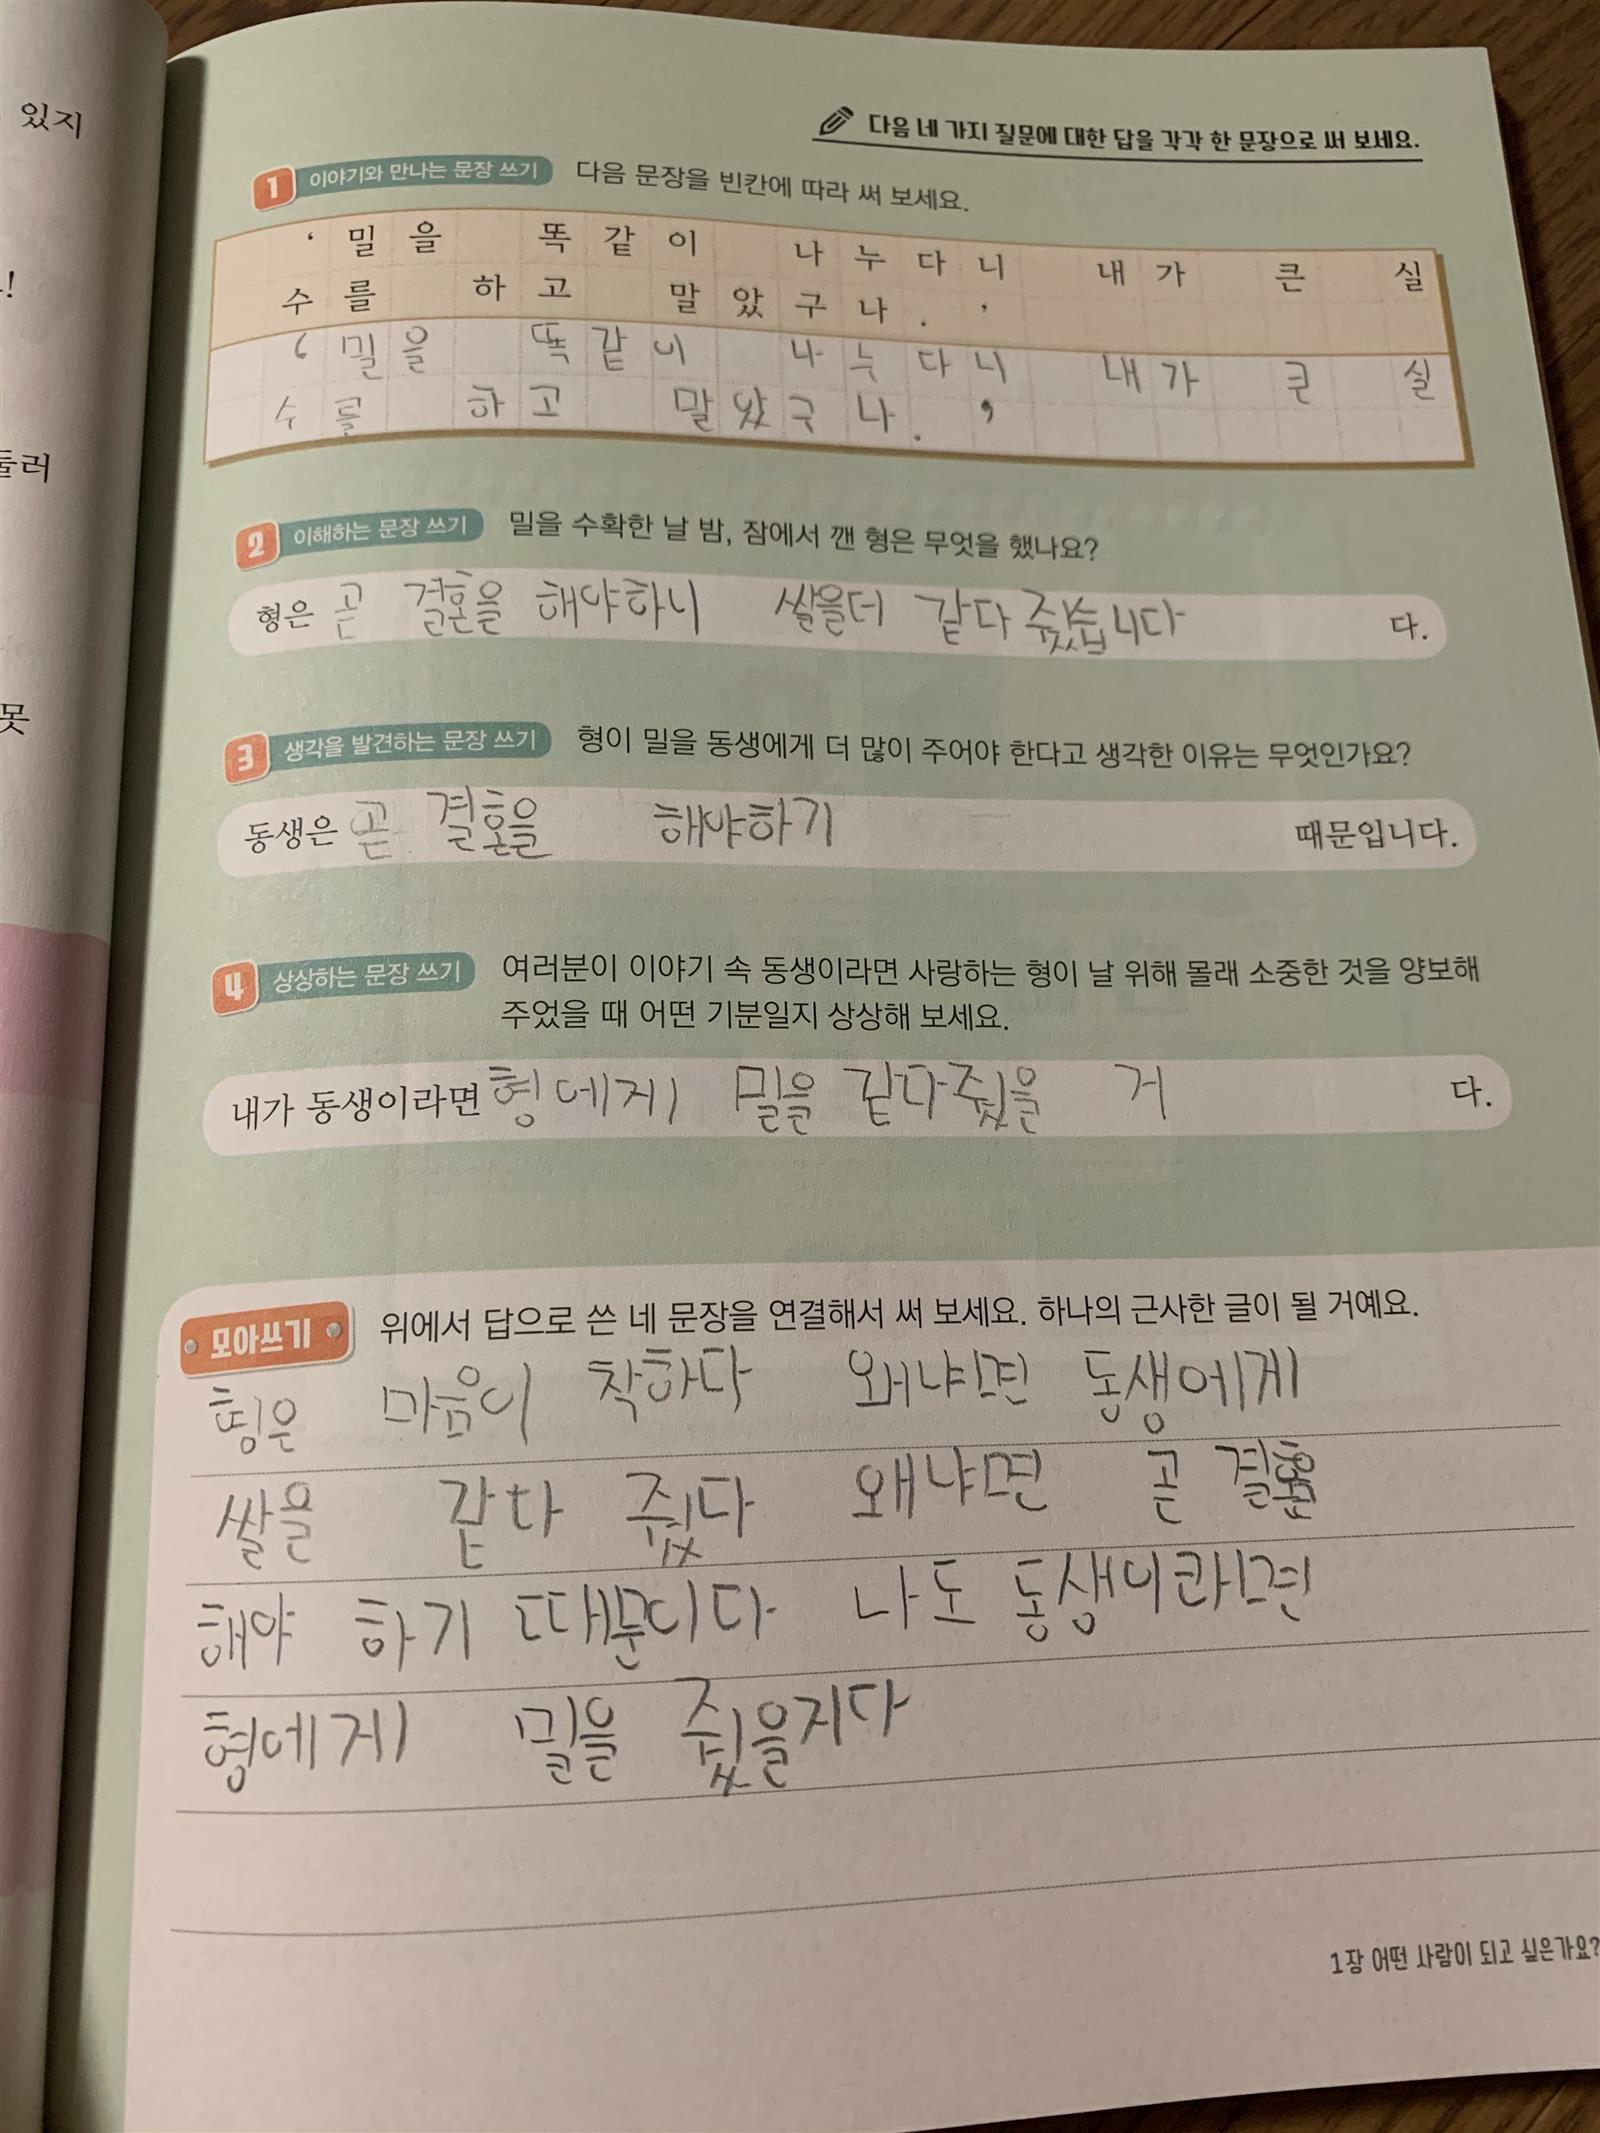 있지
!
둘러
못
다음 네 가지 질문에 대한 답을 각각 한 문장으로 써 보세요.
1 이야기와 만나는 문장 쓰기 다음 문장을 빈칸에 따라 써 보세요.
‘밀을 똑같이 나누다니 내가 큰 실
수를 하고 말았구나.’
‘밀을 똑같이 나누다니 내가 큰 실
수를 하고 말았구나.’
2 이해하는 문장 쓰기 밀을 수확한 날 밤, 잠에서 깬 형은 무엇을 했나요?
형은 곧 결혼을 해야하니 쌀을더 같다 줬습니다 다.
3 생각을 발견하는 문장 쓰기 형이 밀을 동생에게 더 많이 주어야 한다고 생각한 이유는 무엇인가요?
동생은 곧 결혼을 해야하기 때문입니다.
4 상상하는 문장 쓰기 여러분이 이야기 속 동생이라면 사랑하는 형이 날 위해 몰래 소중한 것을 양보해
주었을 때 어떤 기분일지 상상해 보세요.
내가 동생이라면 형에게 밀을 같다줬을 거 다.
모아쓰기 위에서 답으로 쓴 네 문장을 연결해서 써 보세요. 하나의 근사한 글이 될 거예요.
형은 마음이 착하다 왜냐면 동생에게
쌀을 같다 줬다 왜냐면 곧 결혼
해야 하기 때문이다 나도 동생이라면
형에게 밀을 줬을지다
1장 어떤 사람이 되고 싶은가요?